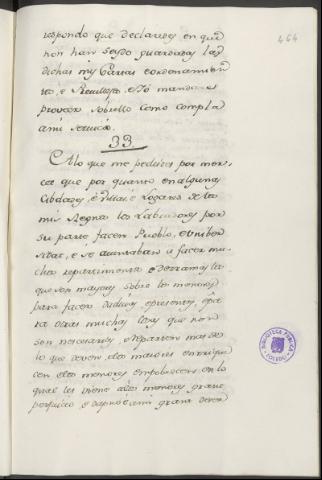 464
respondo que declaredes en que
non han seydo guardadas las
dichas mis Cartas e ordenamien
tos, e Yo mandare
proveer sobrello como compla
a mi servicio.
33
A lo que me pedistes por mer-
ced que por quanto en algunas
Cibdades, e Villas e Logares de los
mis Regnos los Labradores por
su parte facen Pueblo, e Univer
sidat, e se ayuntaban a facer mu
chos repartimientos e derramas los
que son mayores sobre los menores
para facer dadivas e presentes, e pa
ra otras muchas cosas que non
son necesarias, e reparten mas de
lo que deven, e los maiores enriquecen
con ellos menores empobrescen, en lo
qual les viene a los menores grave
perjuicio e dapno e a mi grant deser
BIBLIOTECA PUBLICA
TOLEDO